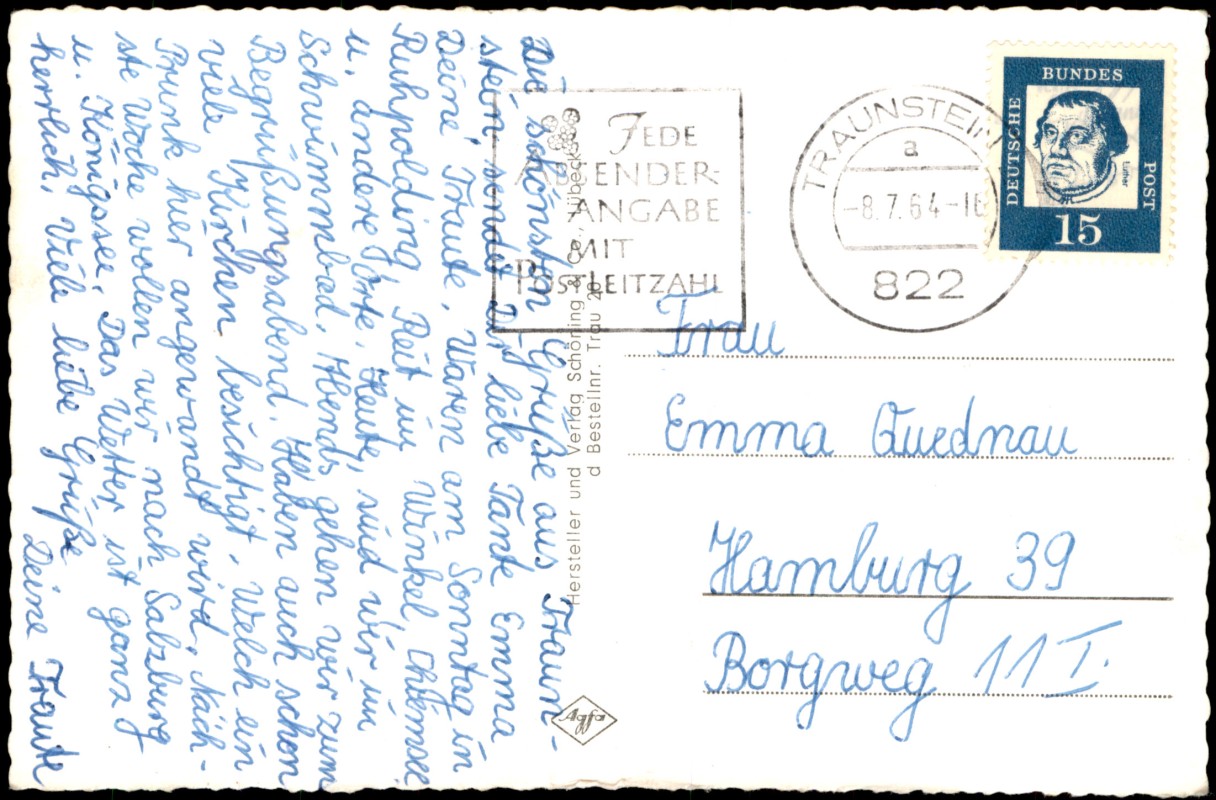 Die schönsten Grüße aus Traun-
stein, sendet Dir liebe Tante Emma
Deine Traute. Waren am Sonntag in
Ruhpolding, Reit im Winkel, Chiemsee
u. andere Orte. Heute sind wir im
Schwimmbad. Abends gehen wir zum
Begrüßungsabend. Haben auch schon
viele Kirchen besichtigt. Welch ein
Prunk hier angewandt wird. Näch-
ste Woche wollen wir nach Salzburg
u. Königssee. Das Wetter ist ganz
herrlich. Viele liebe Grüße
Deine Traute
Hersteller und Verlag Schöning & Co., Lübeck
d Bestellnr. Trau
Agfa
JEDE
ABSENDER-
ANGABE
MIT
POSTLEITZAHL
TRAUNSTEIN
a
-8.7.64-
822
DEUTSCHE
BUNDES
POST
Luther
15
Frau
Emma Quednau
Hamburg 39
Borgweg 11 I.